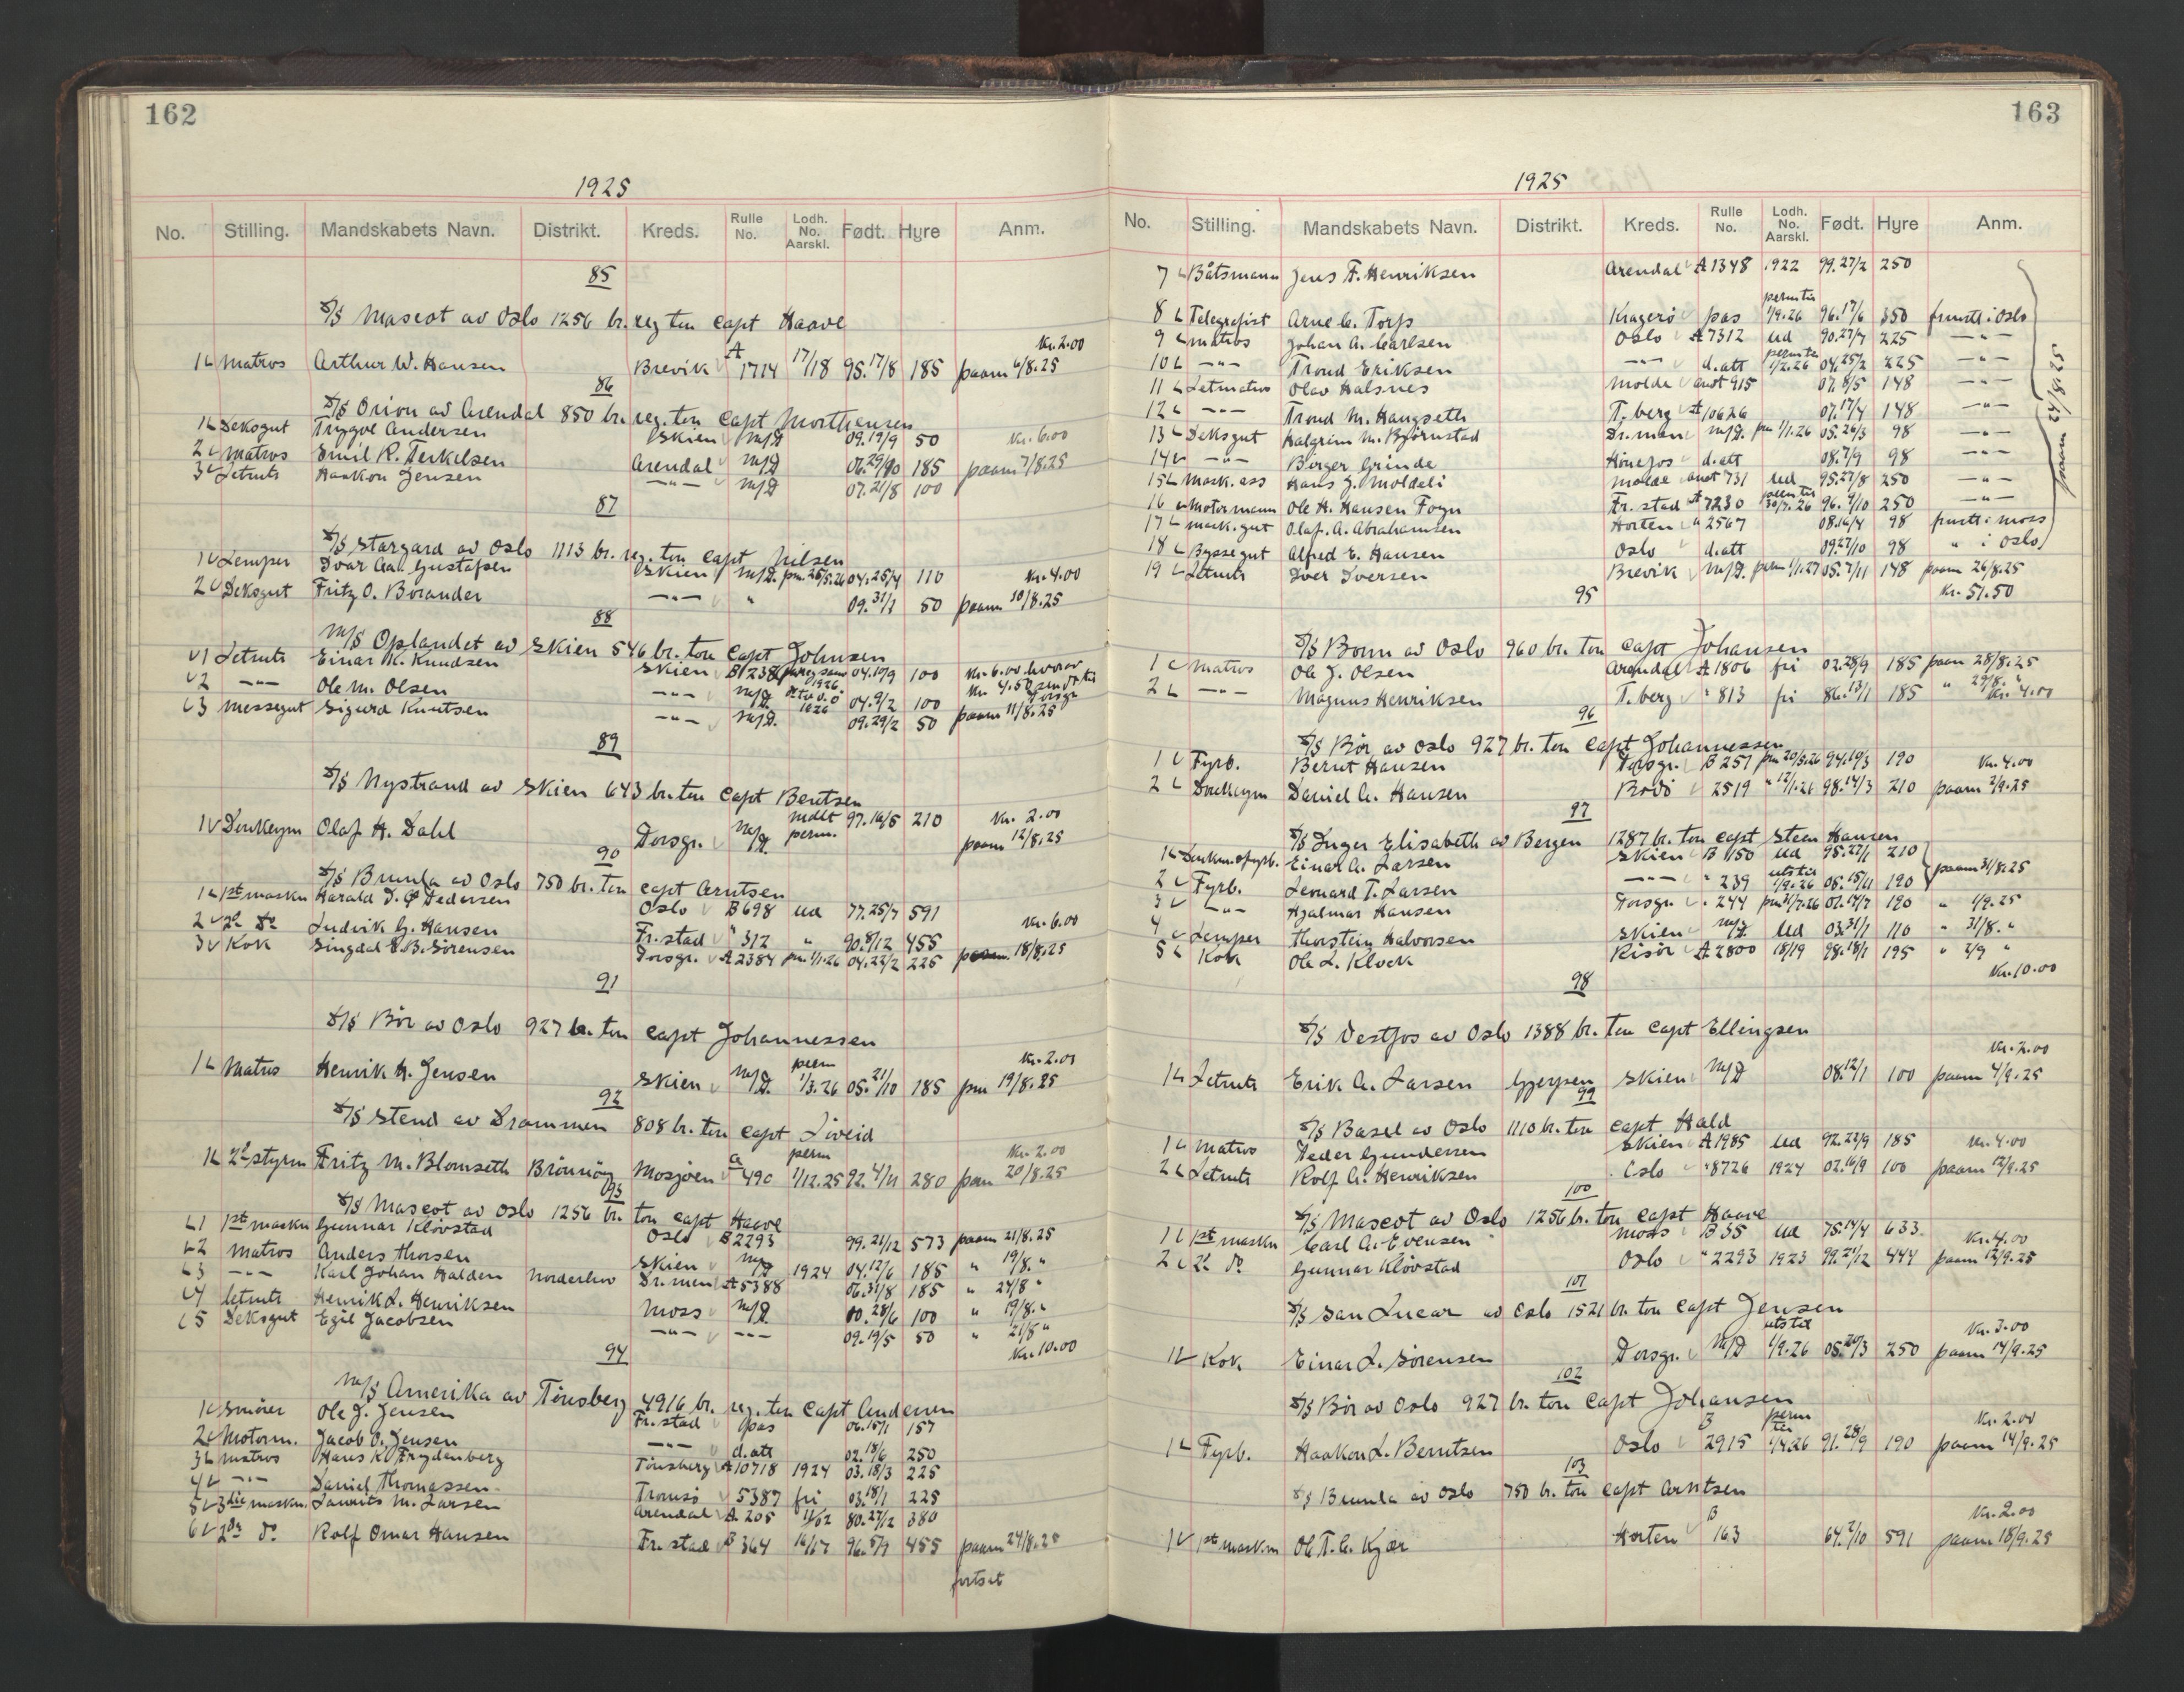 162
1925
No. Stilling. Mandskabets Navn. Distrikt. Kreds. Rulle No. Lodh. No. Aarskl. Født. Hyre Anm.
85
S/S Mascot av Oslo 1256 br. reg ton Capt Haave
Kr. 2.00
1 Matros Arthur W. Hansen Brevik A 1714 17/18 95.17/8 185 paam 6/8.25
86
S/S Orion av Arendal 850 br. reg. ton Capt Morthensen
1 Deksgut Trygve Andersen Skien M/D 09.19/9 50 Kr. 6.00
2 Matros Emil R. Terkelsen Arendal M/D 185 paam 7/8.25
3 Letmts Haakon Jensen -"- M/D 07.21/8 100
87
S/S Stargard av Oslo 1113 br. reg. ton Capt Nilsen
1 Lemper Ivar Aa. Gustafsen Skien M/D. pm. 25/5.26 04.25/4 110 Kr. 4.00
2 Deksgut Fritz O. Borander -"- " 09.31/3 50 paam 10/8.25
88
M/S Oplandet av Skien 546 br. ton Capt Johnsen
1 Letmts Einar K. Knudsen Skien B 1238 04.10/9 100 Kr. 6.00 hvorav
2 -"- Ole M. Olsen -"- M/D. 04.9/2 100 Kr 4.50
3 Messegut Sigurd Knutsen -"- M/D. 09.29/2 50 paam 11/8.25
89
S/S Nystrand av Skien 643 br. ton Capt Bentsen
1 Donkeym Olaf H. Dahl Porsgr. M/D. midlt perm. 97.16/5 210 Kr. 2.00
paam 12/8.25
90
S/S Brumla av Oslo 750 br. ton Capt Arntsen
1 1st maskn Harald I. Pedersen Oslo B 698 ud 77.25/7 591
2 2d Do Ludvik G. Hansen Fr.stad " 312 " 90.8/12 455 Kr. 6.00
3 Kok Singdal E. B. Sörensen Porsgr. A 2384 pm. 1/1.26 04.22/2 225 paam 18/8.25
91
S/S Bör av Oslo 927 br. ton Capt Johannessen
Kr. 2.00
1 Matros Henrik H. Jensen Skien M/D. perm 1/3.26 05.21/10 185 pm 19/8.25
92
S/S Stend av Drammen 808 br. ton Capt Liveid
Kr. 2.00
1 2d styrm Fritz M. Blomseth Brönnöy Mosjöen a 490 perm 1/12.25 92.4/11 280 pam 20/8.25
93
S/S Mascot av Oslo 1256 br. ton Capt Haave
1 1st maskn Gunnar Klövstad Oslo B 2293 99.21/12 573 paam 21/8.25
2 Matros Anders Thorsen Skien M/D 1924 04.12/6 185 " 19/8. "
3 -"- Karl Johan Halden Norderhov Dr.men A 5388 06.31/8 185 " 24/8 "
4 Letmts Henrik L. Henriksen Moss M/D. 00.28/6 100 " 19/8. "
5 Deksgut Egil Jacobsen -"- -"- 09.19/5 50 " 21/8 "
Kr. 10.00
94
M/S Amerika av Tönsberg 4916 br. reg. ton Capt Andersen
1 Smörer Ole J. Jensen Fr.stad pas 06.15/1 157
2 Motorm. Jacob O. Jensen -"- d.att 02.18/6 250
3 Matros Hans K. Frydenberg Tönsberg A 10718 1924 03.18/3 225
4 -"- Daniel Thomassen Tromsö 5387 fri 03.18/1 225
5 3die maskn. Laurits M. Larsen Arendal A 205 11/02 80.27/12 380
6 2de do Rolf Omar Hansen Fr.stad B 364 16/17 96.5/9 455 paam 24/8.25
fortset
163
1925
No. Stilling. Mandskabets Navn. Distrikt. Kreds. Rulle No. Lodh. No. Aarskl. Født. Hyre Anm.
7 Båtsmann Jens F. Henriksen Arendal A 1348 1922 99.27/2 250
8 Telegrafist Arne C. Torp Kragerö pas perm til 1/9.26 96.17/6 350 frustt i Oslo
9 Matros Johan A. Carlsen Oslo A 7312 ud 90.27/7 225 -"-
10 -"- Trond Eriksen -"- d.att perm til 1/2.26 04.25/2 225 -"-
11 Letmatros Olav Halsnes Molde anot 915 07.8/5 148 -"-
12 -"- Trond M. Haugseth T.berg A 10626 07.17/4 148 -"-
13 Deksgut Halgrim M. Björnstad Dr.men M/D. pm 1/1.26 05.26/3 98 -"-
14 -"- Birger Grinde Hönefos d.att 08.7/9 98 -"-
15 Mask. ass Hans J. Moldeli Molde anot 731 ud 95.27/8 250 -"-
16 Motormann Ole H. Hansen Foyn Fr.stad A 7230 perm til 30/5.26 96.9/10 250 -"-
17 mask. gut Olaf. A. Abrahamsen Horten a 2567 08.16/4 98 frustt i Moss
18 Byssegut Alfred E. Hansen Oslo d.att 09.27/10 98 " i Oslo
paam 24/8.25
19 Letmts Iver Iversen Brevik M/D. perm 1/1.27 05.7/11 148 paam 26/8.25
Kr. 51.50
95
S/S Bonn av Oslo 960 br. ton Capt Johansen
1 Matros Ole J. Olsen Arendal A 1806 fri 02.28/9 185 paam 28/8.25
2 -"- Magnus Henriksen T.berg " 813 fri 86.13/1 185 " 29/8. "
Kr. 4.00
96
S/S Bör av Oslo 927 br. ton Capt Johannessen
1 Fyrb. Bernt Hansen Porsgr. B 257 pm 20/5.26 94.10/3 190 Kr. 4.00
2 Donkeym Daniel C. Hansen Bodö 2519 " 12/1.26 98.14/3 210 paam 2/9.25
97
S/S Inger Elisabeth av Bergen 1287 br. ton Capt Steen Hansen
1 Donkm. o fyrb. Einar A. Larsen Skien B 1150 ud 95.27/1 210
2 Fyrb. Leonard T. Larsen -"- " 239 utst til 1/9.26 05.15/11 190 paam 31/8.25
3 -"- Hjalmar Hansen Porsgr. " 244 pm 31/7.26 02.14/7 190 " 1/9.25
4 Lemper Thorstein Halvorsen Skien M/D. ud 03.31/1 110 " 31/8. "
5 Kok Ole L. Klock Risör A 2800 18/19 98.18/1 195 " 2/9 "
Kr. 10.00
98
S/S Vestfos av Oslo 1388 br. ton Capt Ellingsen
Kr. 2.00
1 Letmts Erik A. Larsen Gjerpen Skien M/D 08.12/1 100 paam 4/9.25
99
S/S Basel av Oslo 1110 br. ton Capt Hald
1 Matros Peder Gundersen Skien A 1985 ud 92.22/9 185 Kr. 4.00
2 Letmts Rolf G. Henriksen Oslo " 8726 1924 02.16/9 100 paam 12/9.25
100
S/S Mascot av Oslo 1256 br. ton Capt Haave
1 1st maskn Carl A. Evensen Moss B 35 ud 75.14/4 633 Kr. 4.00
2 2d Do Gunnar Klövstad Oslo " 2293 1923 99.21/12 444 paam 12/9.25
101
S/S San Lucar av Oslo 1521 br. ton Capt Jensen
Kr. 3.00
1 Kok Einar L. Sörensen Porsgr. M/D utst til 1/9.26 05.20/3 250 paam 14/9.25
102
S/S Bör av Oslo 927 br. ton Capt Johansen
Kr. 2.00
1 Fyrb. Haakon L. Berntsen Oslo B 2915 perm til 1/4.26 91.28/9 190 paam 14/9.25
103
S/S Brumla av Oslo 750 br. ton Capt Arntsen
Kr. 2.00
1 1st maskn Ole T. C. Kjær Horten B 163 64.2/10 591 paam 18/9.25